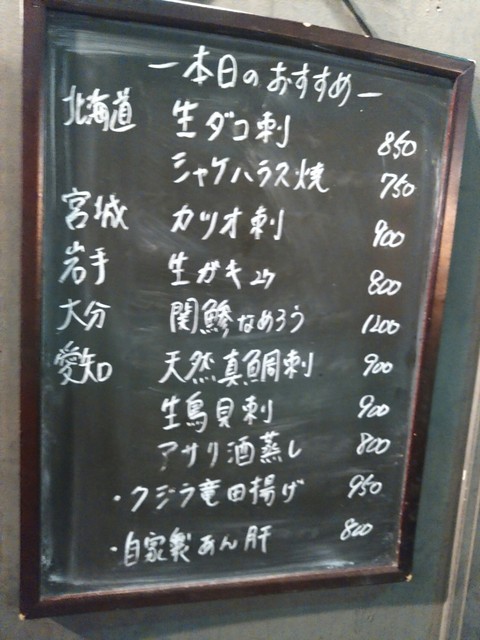 ー本日のおすすめー
北海道 生ダコ刺 850
シャケハラス焼 750
宮城 カツオ刺 900
岩手 生ガキ2ケ 800
大分 関鯵なめろう 1200
愛知 天然真鯛刺 900
生鳥貝刺 900
アサリ酒蒸し 800
・クジラ竜田揚げ 950
・自家製あん肝 800